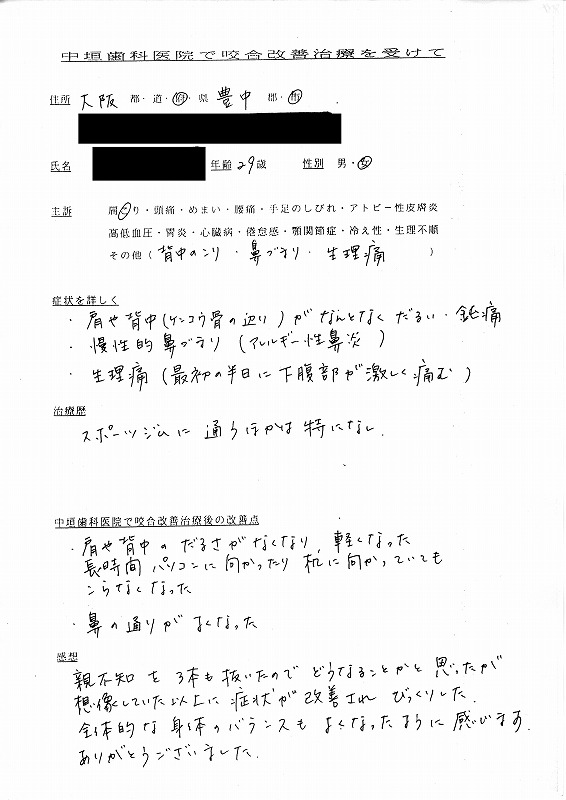 中垣歯科医院で咬合改善治療を受けて
住所 大阪 都・道・府・県 豊中 郡・市
氏名 年齢 29歳 性別 男・女
主訴 肩こり・頭痛・めまい・腰痛・手足のしびれ・アトピー性皮膚炎
高低血圧・胃炎・心臓病・倦怠感・顎関節症・冷え性・生理不順
その他（背中のコリ・鼻づまり・生理痛）
症状を詳しく
・肩や背中(ケンコウ骨の辺り)がなんとなくだるい・鈍痛
・慢性的鼻づまり(アレルギー性鼻炎)
・生理痛(最初の半日に下腹部が激しく痛む)
治療歴
スポーツジムに通うほかは特になし.
中垣歯科医院で咬合改善治療後の改善点
・肩や背中のだるさがなくなり、軽くなった
長時間パソコンに向かったり机に向かっていても
こらなくなった
・鼻の通りがよくなった
感想
親不知を3本も抜いたのでどうなることかと思ったが
想像していた以上に症状が改善されびっくりした.
全体的な身体のバランスもよくなったように感じます.
ありがとうございました.